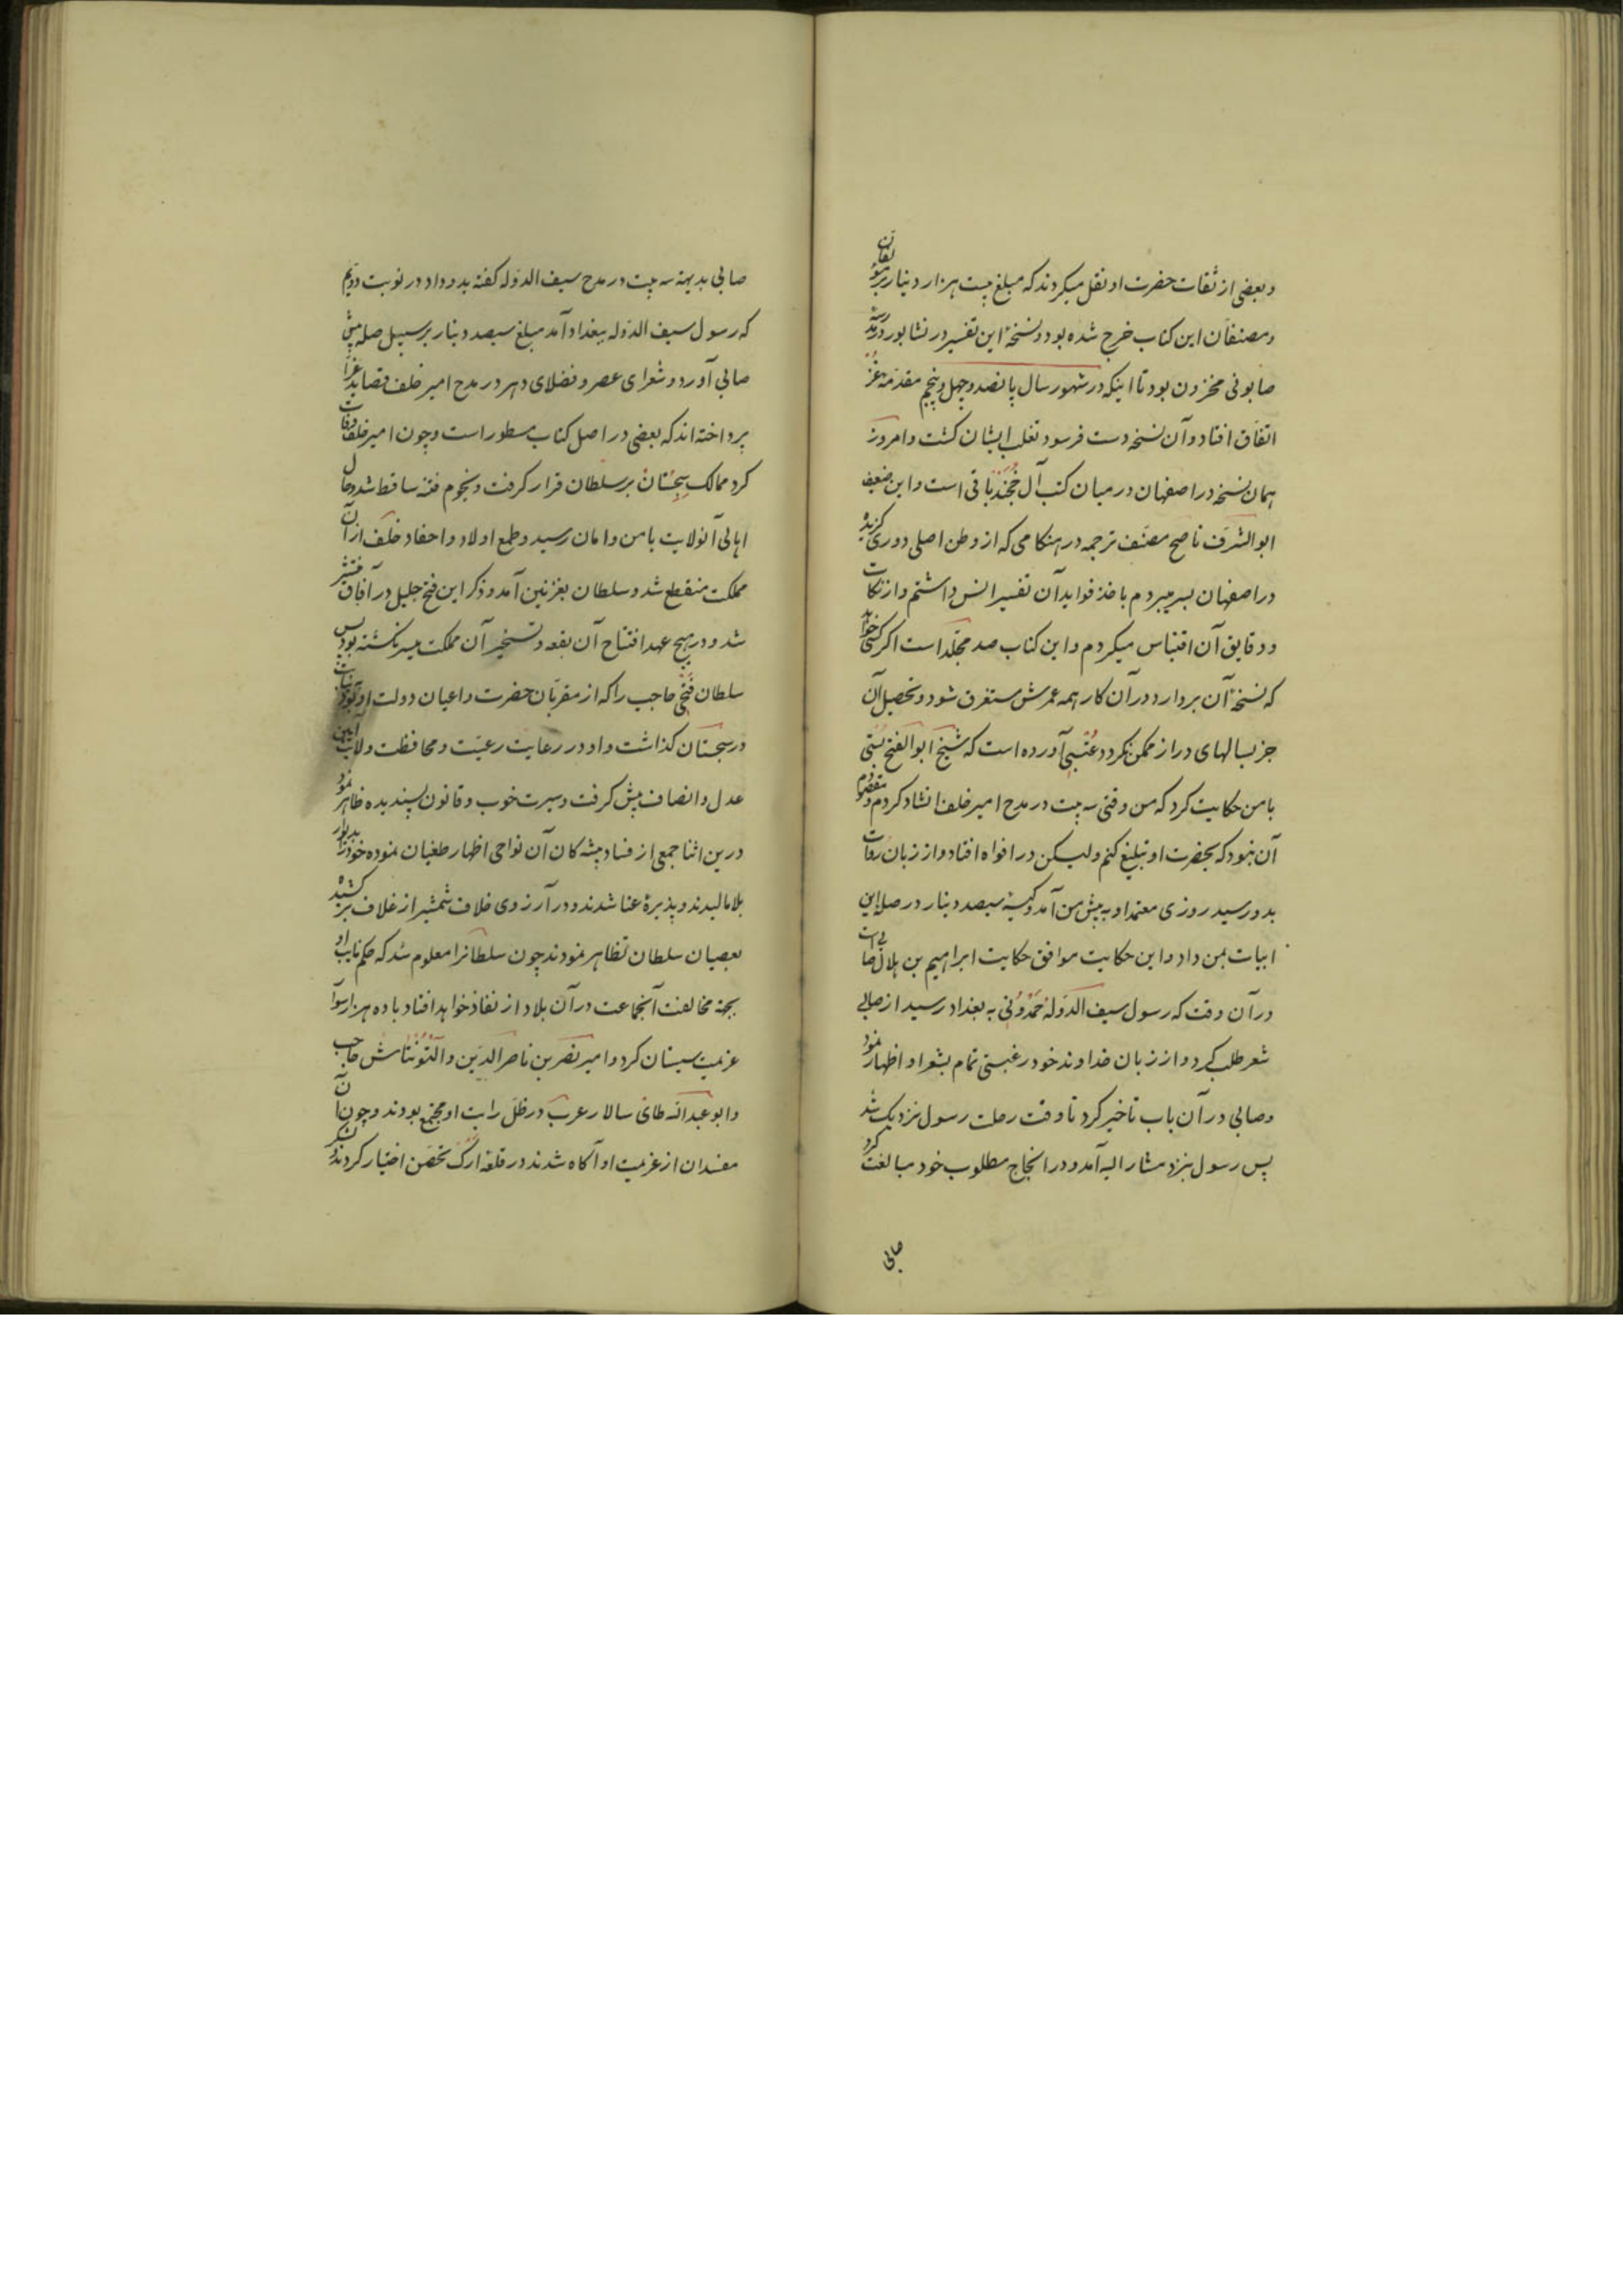 و بعضی از ثقات حضرت او نقل میکردند که مبلغ بیست هزار دینار بر مؤلفان
و مصنفان این کتاب خرج شده بود و نسخهٔ این تفسیر در نشابور در مدرسه
صابونی مخزون بود تا اینکه در شهور سال پانصد و چهل و پنج مقدمهٔ غز
اتفاق افتاد و آن نسخه دست فرسود تغلب ایشان کشت و امروز
همان نسخه در اصفهان در میان کتب آل خجند باقی است و این ضعیف
ابوالشرف ناصح مصنف ترجمه در هنکامی که از وطن اصلی دوری کزیده
در اصفهان بسر میبردم باخذ فواید آن تفسیر انس داشتم و از نکات
و دقایق آن اقتباس میکردم و این کتاب صد مجلد است اکر کسی خواهد
که نسخهٔ آن بردارد در آن کار همه عمرش مستغرق شود و تحصیل آن
جز بسالهای دراز ممکن نکردد عتبی آورده است که شیخ ابوالفتح بستی
با من حکایت کرد که من وقتی سه بیت در مدح امیر خلف انشاد کردم و مقصودم
آن نبود که بحضرت او تبلیغ کنم ولیکن در افواه افتاد و از زبان روات
بدو رسید روزی معتمد او به پیش من آمد و کیسهٔ سیصد دینار در صلهٔ این
ابیات بمن داد و این حکایت موافق حکایت ابراهیم بن هلال صابی است
در آن وقت که رسول سیف الدوله حمدونی به بغداد رسید از صابی
شعر طلب کرد و از زبان خداوند خود رغبتی تمام بشعر او اظهار نمود
و صابی در آن باب تاخیر کرد تا وقت رحلت رسول نزدیک شد
پس رسول بنزد مشار الیه آمد و در انجاح مطلوب خود مبالغت کرد
صابی
صابی بدیهة سه بیت در مدح سیف الدوله کفته بدو داد در نوبت دویم
که رسول سیف الدوله ببغداد آمد مبلغ سیصد دینار بر سبیل صله پیش
صابی آورد و شعرای عصر و فضلای دهر در مدح امیر خلف قصاید غرا
پرداخته‌اند که بعضی در اصل کتاب مسطور است و چون امیر خلف وفات
کرد ممالک سجستان بر سلطان قرار کرفت و نجوم فتنه ساقط شد و حال
اهالی آنولایت بامن و امان رسید و طمع اولاد و احفاد خلف از آن
مملکت منقطع شد و سلطان بغزنین آمد و ذکر این فتح جلیل در آفاق منتشر
شد و در هیچ عهد افتتاح آن بقعه و تسخیر آن مملکت میسر نکشته بود پس
سلطان فتحی حاجب را که از مقربان حضرت و اعیان دولت او بود
در سجستان کذاشت و او در رعایت رعیت و محافظت ولایت آیین
عدل و انصاف پیش کرفت و سیرت خوب و قانون پسندیده ظاهر نمود
درین اثنا جمعی از فساد پیشه کان آن نواحی اظهار طغیان نموده خود را بدیوار
بلا مالیدند و پذیرهٔ عنا شدند و در آرزوی خلاف شمشیر از غلاف بر کشیده
بعصیان سلطان تظاهر نمودند چون سلطانرا معلوم شد که حکم نایب او
بجهة مخالفت آنجماعت در آن بلاد از نفاذ خواهد افتاد با ده هزار سوار
عزیمت سیستان کرد و امیر نصر بن ناصر الدین و التونتاش حاجب
و ابو عبدالله طائی سالار عرب در ظل رایت او مجتمع بودند و چون آن
مفسدان از عزیمت او آکاه شدند در قلعه ارک تحصن اختیار کردند و لشکر